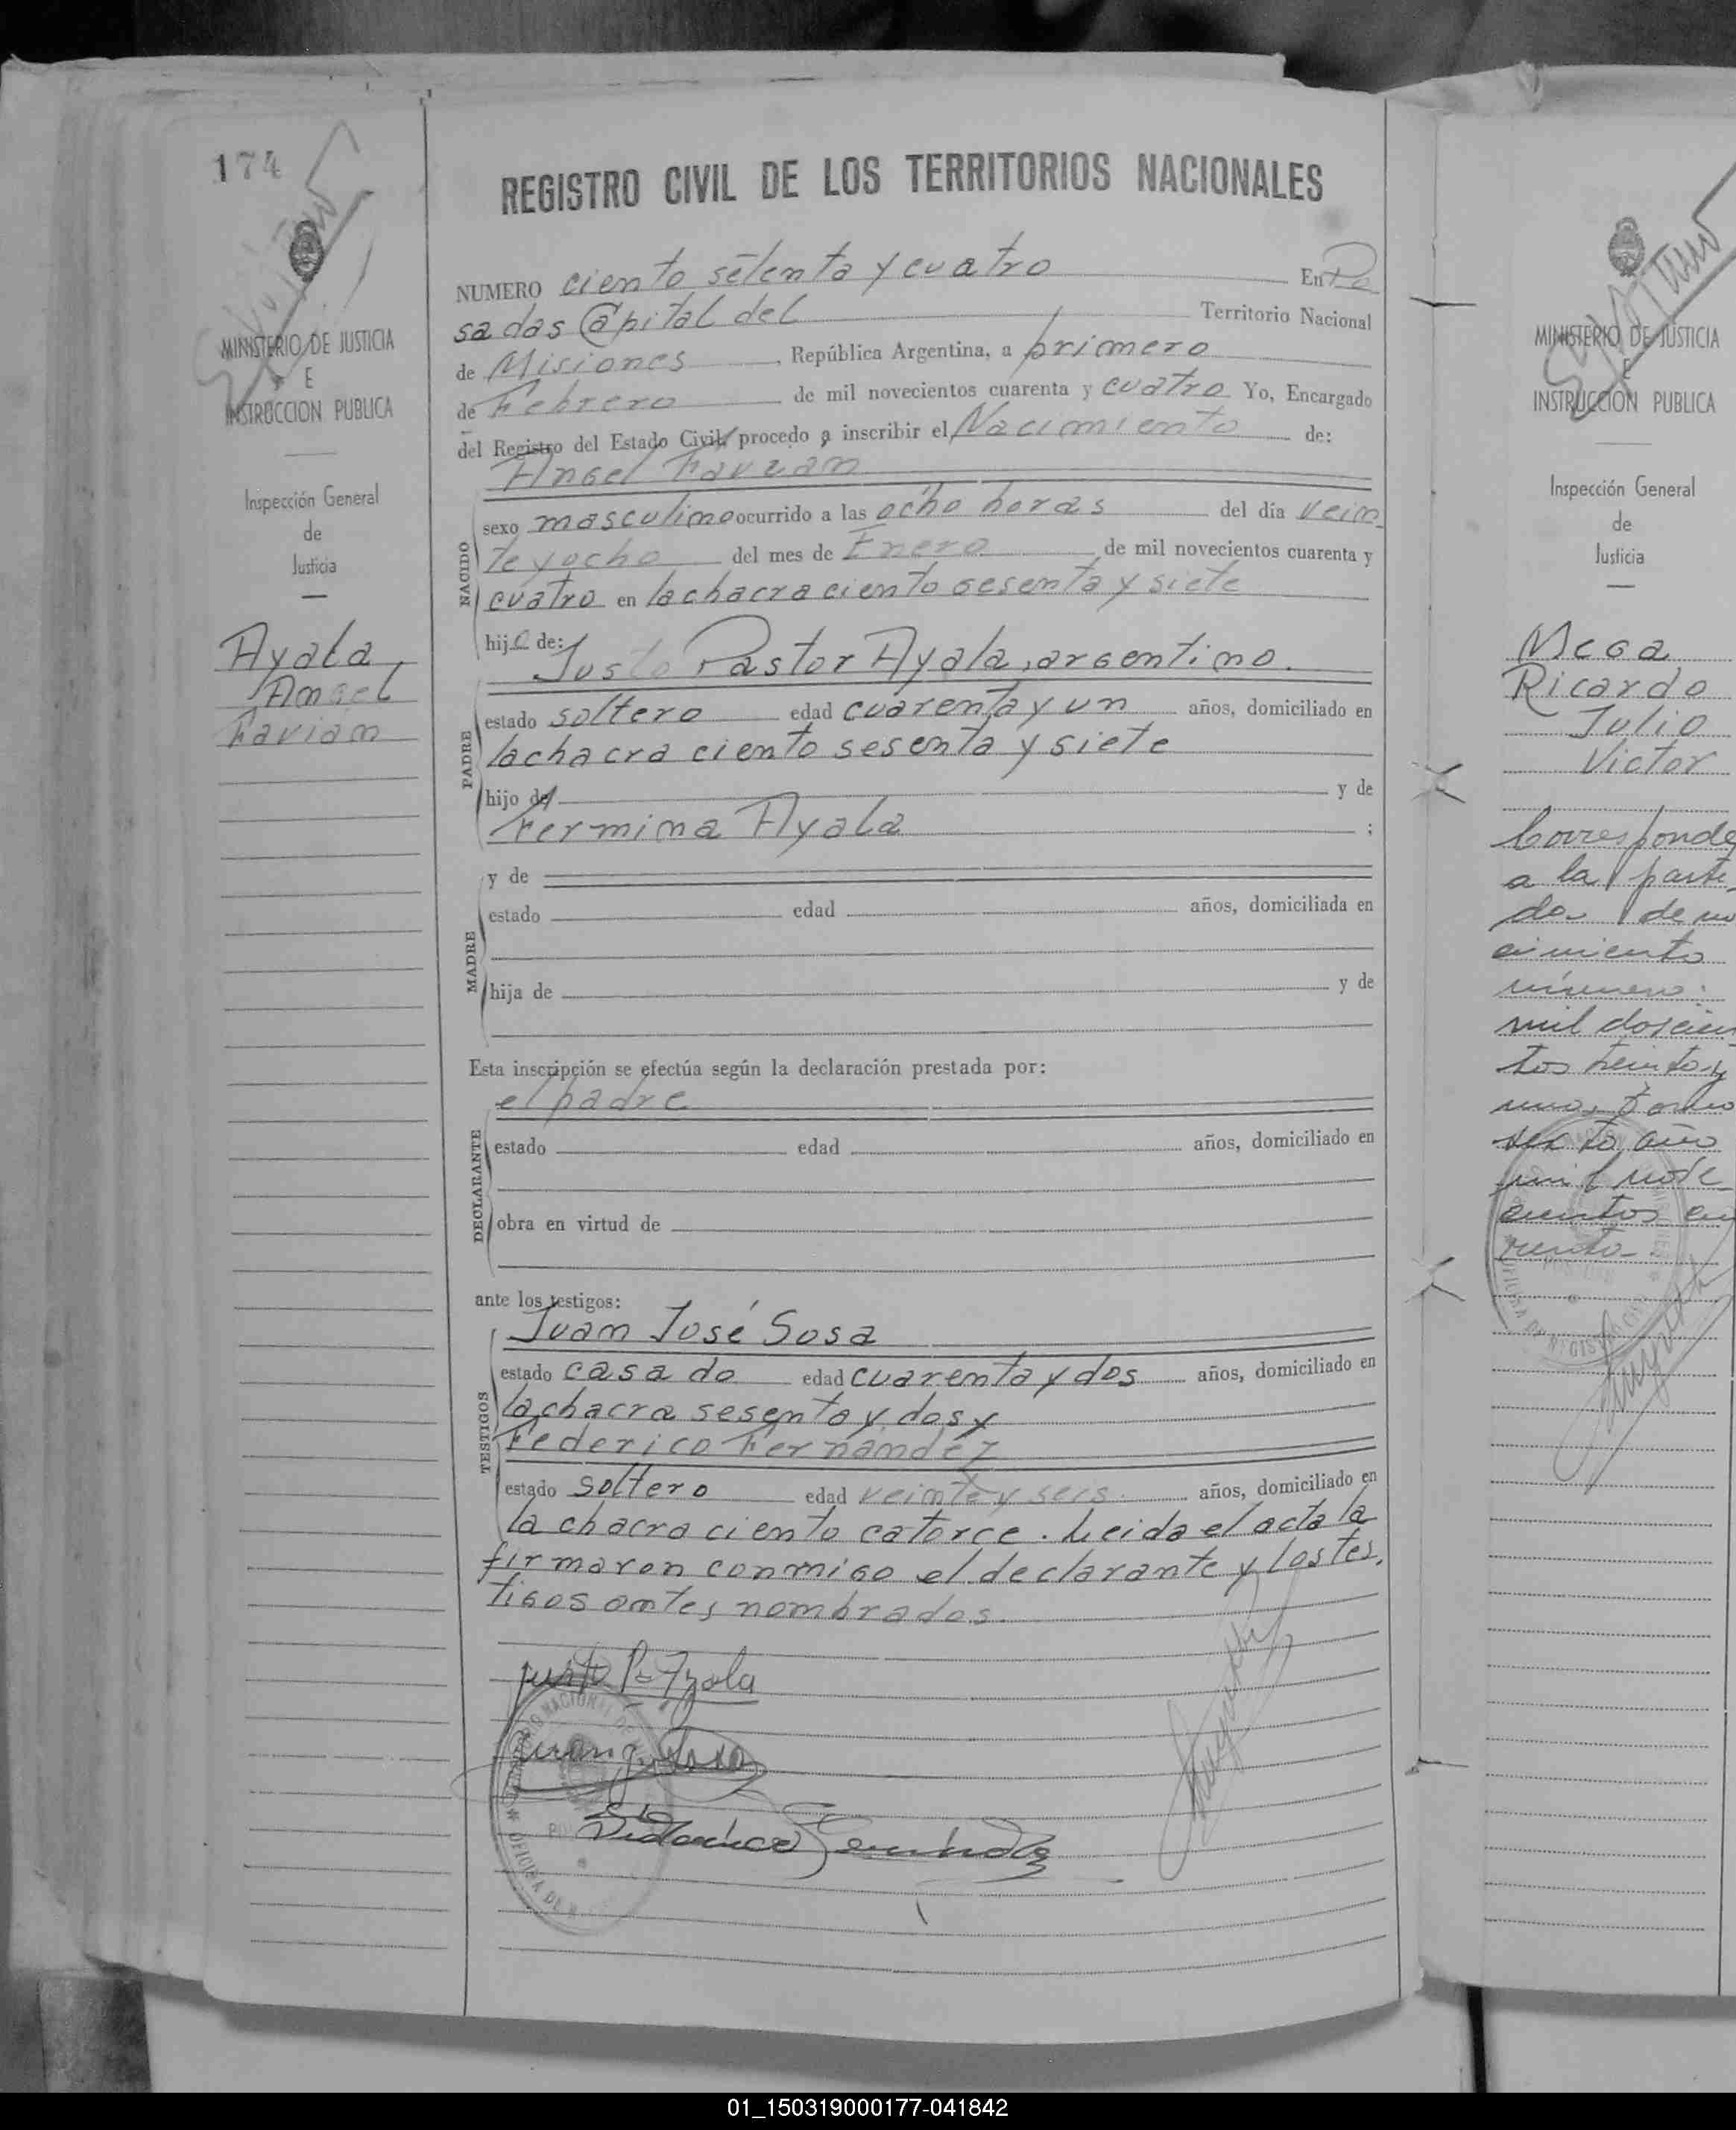 174
MINISTERIO DE JUSTICIA
E
INSTRUCCION PUBLICA
Inspección General
de
Justicia
Ayala,
Angel
Favian
REGISTRO CIVIL DE LOS TERRITORIOS NACIONALES
NUMERO ciento setenta y cuatro En Po
sadas Capital del Territorio Nacional
de Misiones, República Argentina, a primero
de Febrero de mil novecientos cuarenta y cuatro Yo, Encargado
del Registro del Estado Civil, procedo a inscribir el Nacimiento de:
Angel Favian
NACIDO
sexo masculino ocurrido a las ocho horas del día vein
te y ocho del mes de Enero de mil novecientos cuarenta y
cuatro en la chacra ciento sesenta y siete
hijo de:
Justo Pastor Ayala, argentino.
PADRE
estado soltero edad cuarenta y un años, domiciliado en
la chacra ciento sesenta y siete
hijo de y de
Fermina Ayala ;
y de
MADRE
estado edad años, domiciliada en
hija de y de
Esta inscripción se efectúa según la declaración prestada por:
el padre
DECLARANTE
estado edad años, domiciliado en
obra en virtud de
ante los testigos:
Juan José Sosa
TESTIGOS
estado casado edad cuarenta y dos años, domiciliado en
la chacra sesenta y dos y
Federico Fernández
estado soltero edad veinte y seis años, domiciliado en
la chacra ciento catorce. Leida el acta la
firmaron conmigo el declarante y los tes.
tigos antes nombrados.
Justo P. Ayala
OFICINA DE
MINISTERIO DE JUSTICIA
E
INSTRUCCION PUBLICA
Inspección General
de
Justicia
Meza
Ricardo
Julio
Victor
Corresponde
a la parti
da de na
cimiento
número:
mil doscien
tos treinta y
uno, tomo
sexto año
mil nove
cientos cua
renta.
01_150319000177-041842